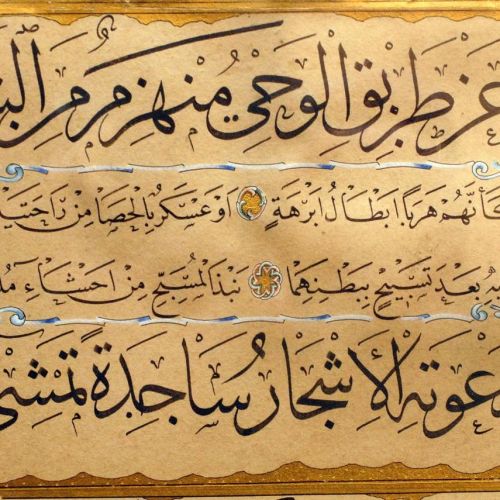 عَنْ طَرِيقِ الْوَحْيِ مُنْهَزِمٌ
كَأَنَّهُمْ هَرَبًا اَبْطَالُ اَبْرَهَةٍ اَوْ عَسْكَرٌ بِالْحَصَا مِنْ رَاحَتَيْـ
بَعْدَ تَسْبِيحٍ بِبَطْنِهِمَا نَبْذَ الْمُسَبِّحِ مِنْ اَحْشَاءِ
دَعْوَتِهِ الْأَشْجَارُ سَاجِدَةً تَمْشِي